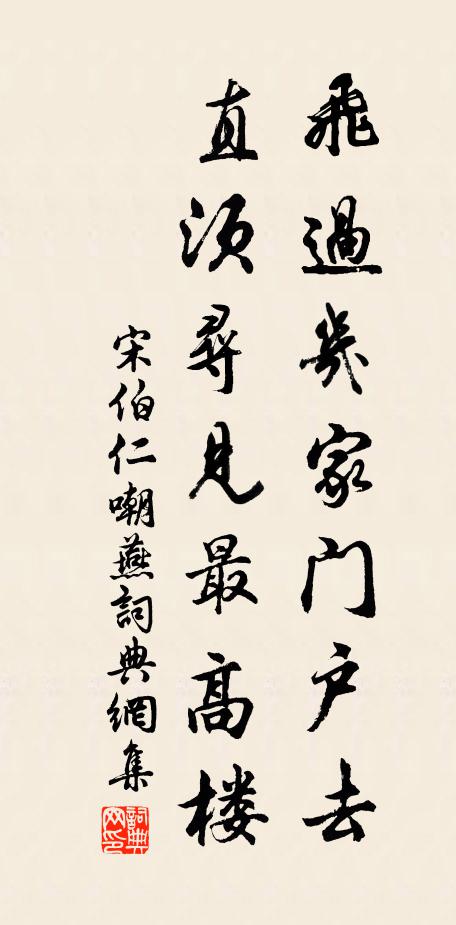 飛過幾家門户去
直須尋見最高楼
宋伯仁嘲燕詞典網集
詞典
网印